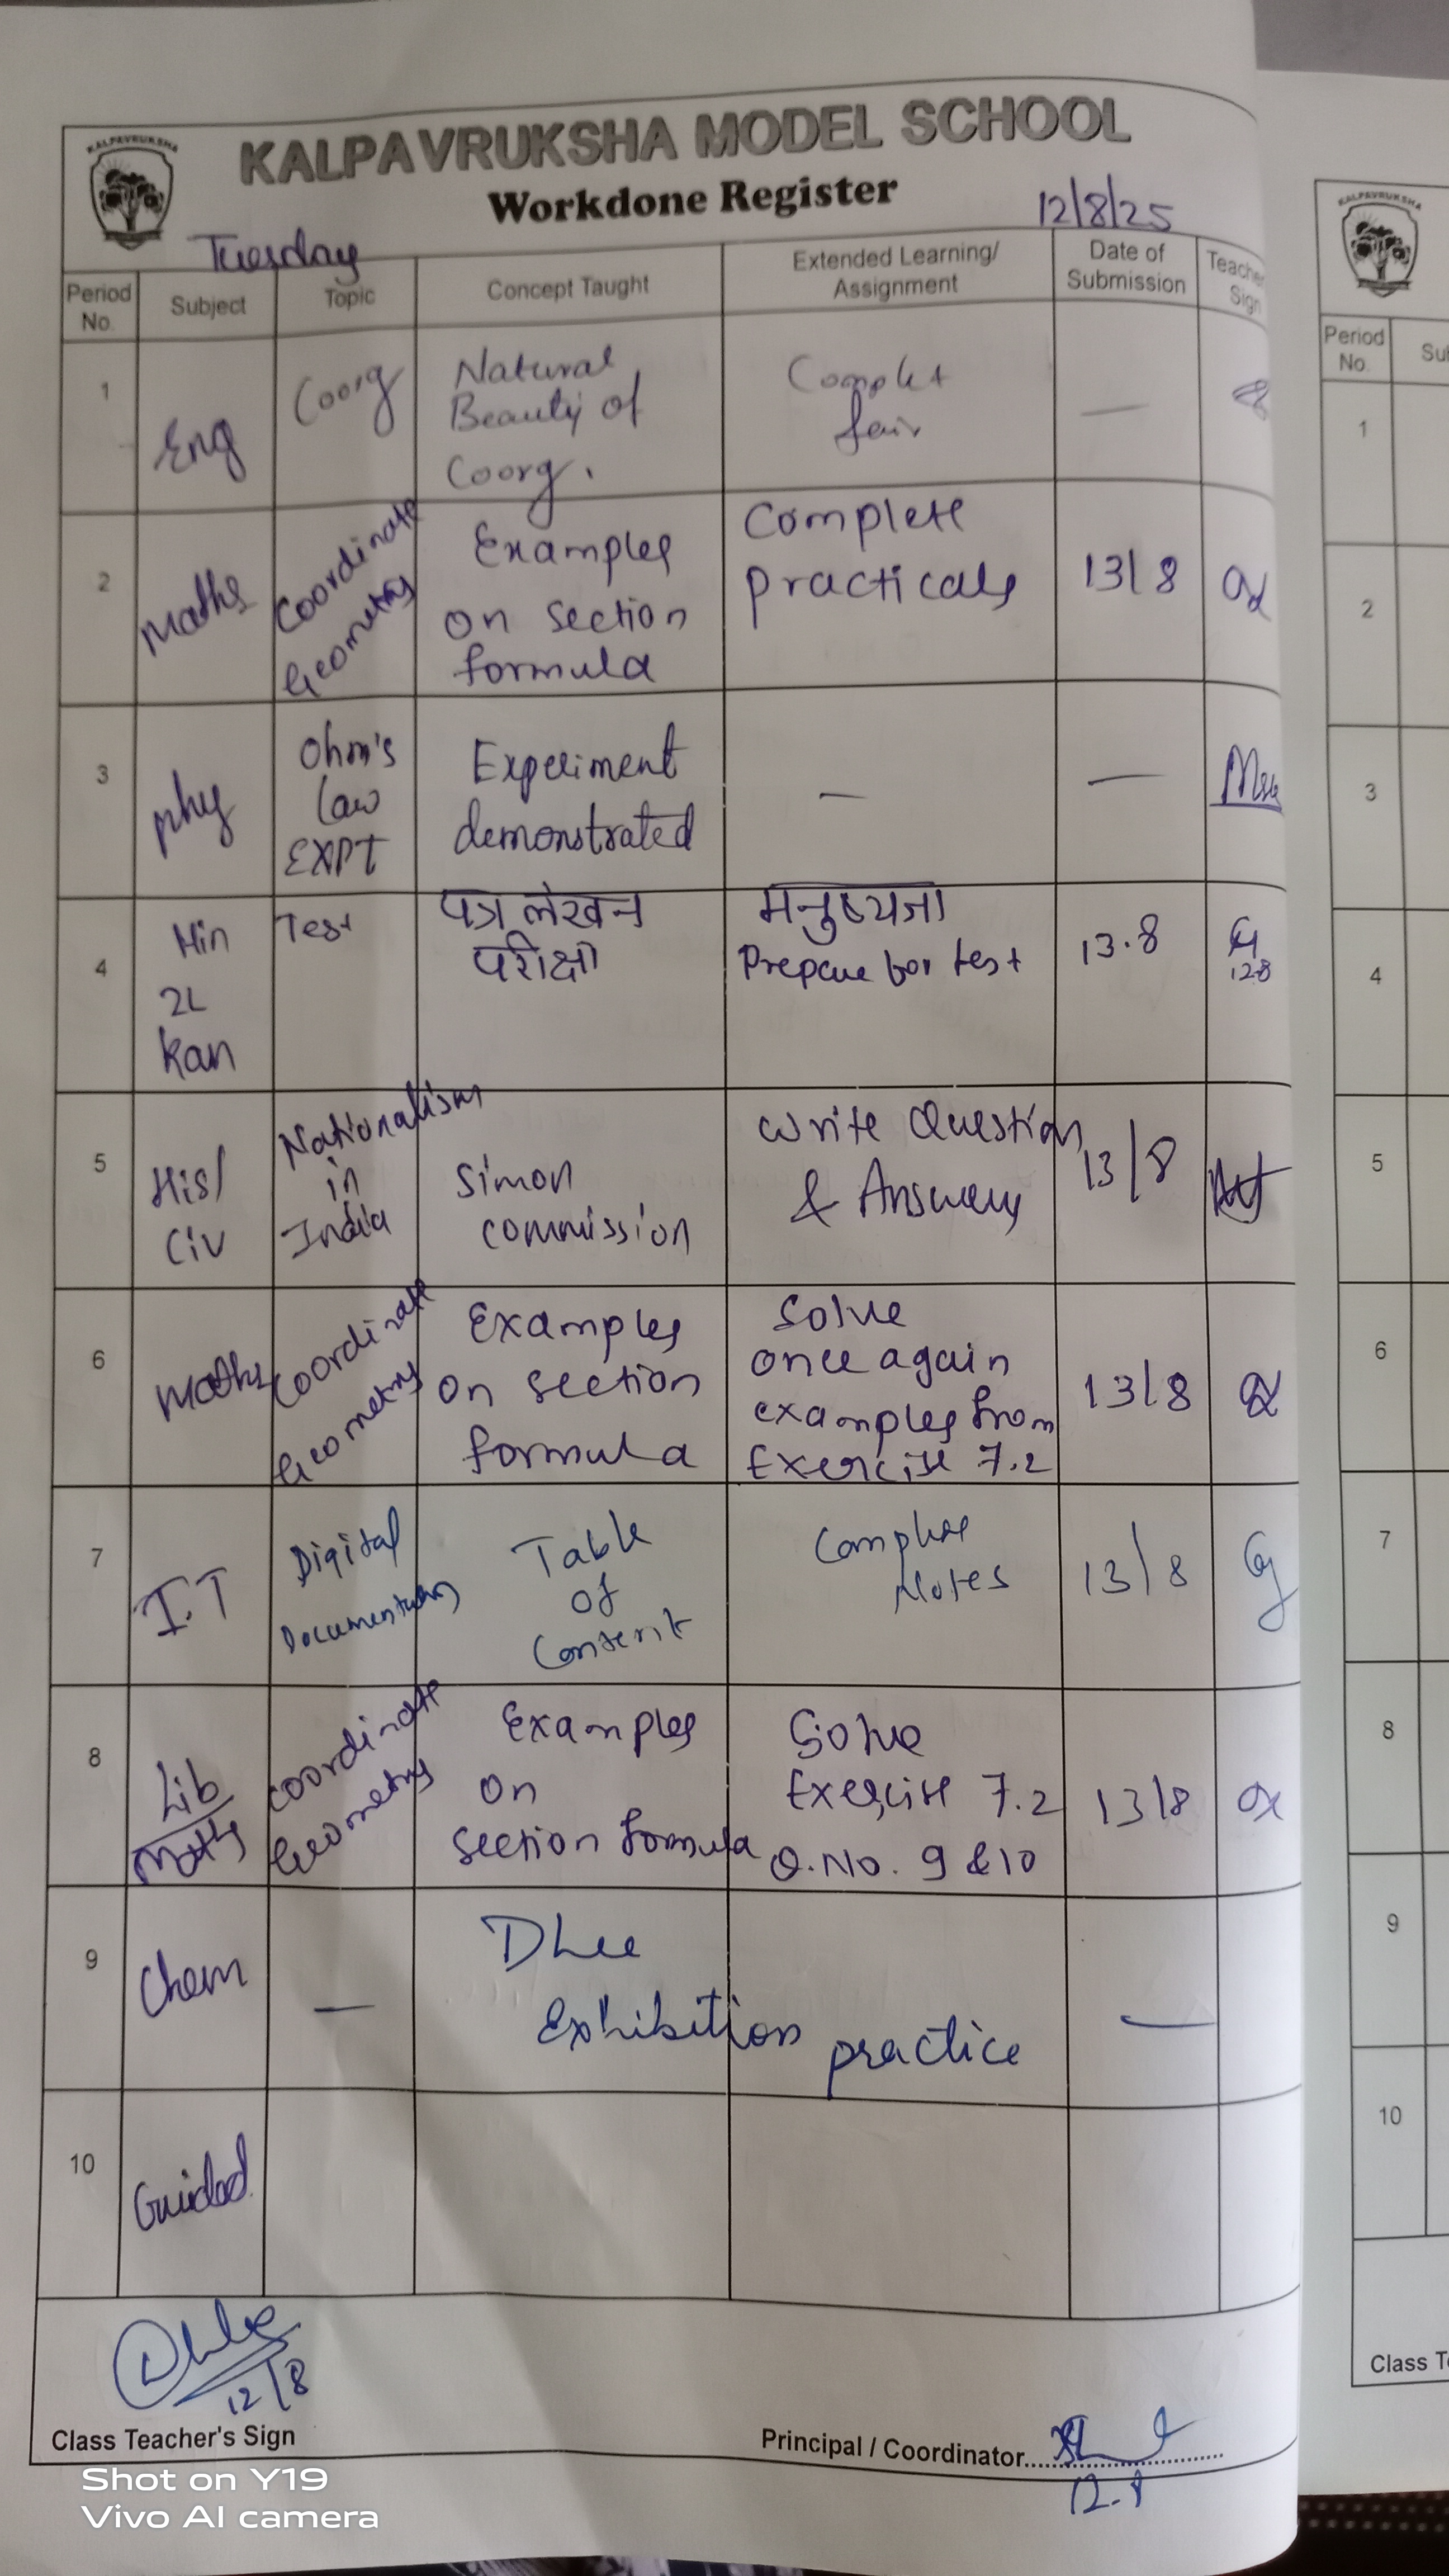 KALPAVRUKSHA
KALPAVRUKSHA MODEL SCHOOL
Workdone Register
Tuesday
12/8/25
Period No.
Subject
Topic
Concept Taught
Extended Learning/
Assignment
Date of
Submission
Teacher
Sign
1
Eng
Coorg
Natural
Beauty of
Coorg.
Complet
fair
—
2
Maths
Coordinate
Geometry
Examples
on section
formula
Complete
practicals
13/8
3
phy
Ohm's
law
EXPT
Experiment
demonstrated
—
—
4
Hin
2L
Kan
Test
पत्र लेखन
परीक्षा
मनुष्यता
Prepare for test
13.8
12.8
5
His/
Civ
Nationalism
in
India
Simon
commission
Write Question
& Answers
13/8
6
Maths
Coordinate
Geometry
Examples
on section
formula
Solve
once again
examples from
Exercise 7.2
13/8
7
I.T
Digital
Documentation
Table
of
Content
Complete
Notes
13/8
8
Lib
Maths
Coordinate
Geometry
Examples
on
section formula
Solve
Exercise 7.2
Q.No. 9 & 10
13/8
9
Chem
—
Exhibition practice
—
10
Guided
12/8
Class Teacher's Sign
Principal / Coordinator
12.8
Shot on Y19
Vivo AI camera
KALPAVRUKSHA
Period
No.
1
2
3
4
5
6
7
8
9
10